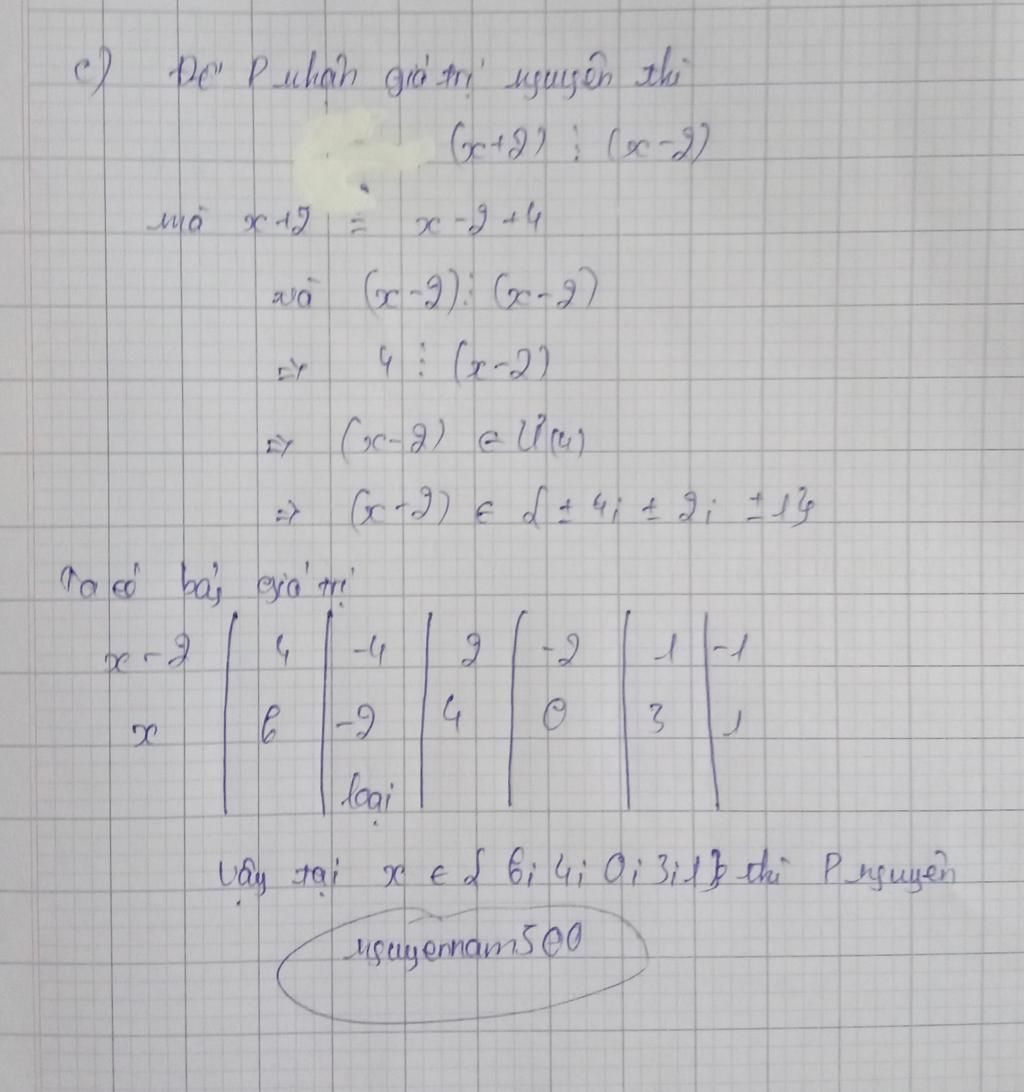 c) Để P nhận giá trị nguyên thì
(x+2) ⋮ (x-2)
mà x+2 = x-2+4
và (x-2) ⋮ (x-2)
=> 4 ⋮ (x-2)
=> (x-2) ∈ Ư(4)
=> (x-2) ∈ { ±4; ±2; ±1}
Ta có bảng giá trị
x-2 | 4 | -4 | 2 | -2 | 1 | -1
x | 6 | -2 | 4 | 0 | 3 | 1
loại
Vậy tại x ∈ { 6; 4; 0; 3; 1} thì P nguyên
nguyennam500